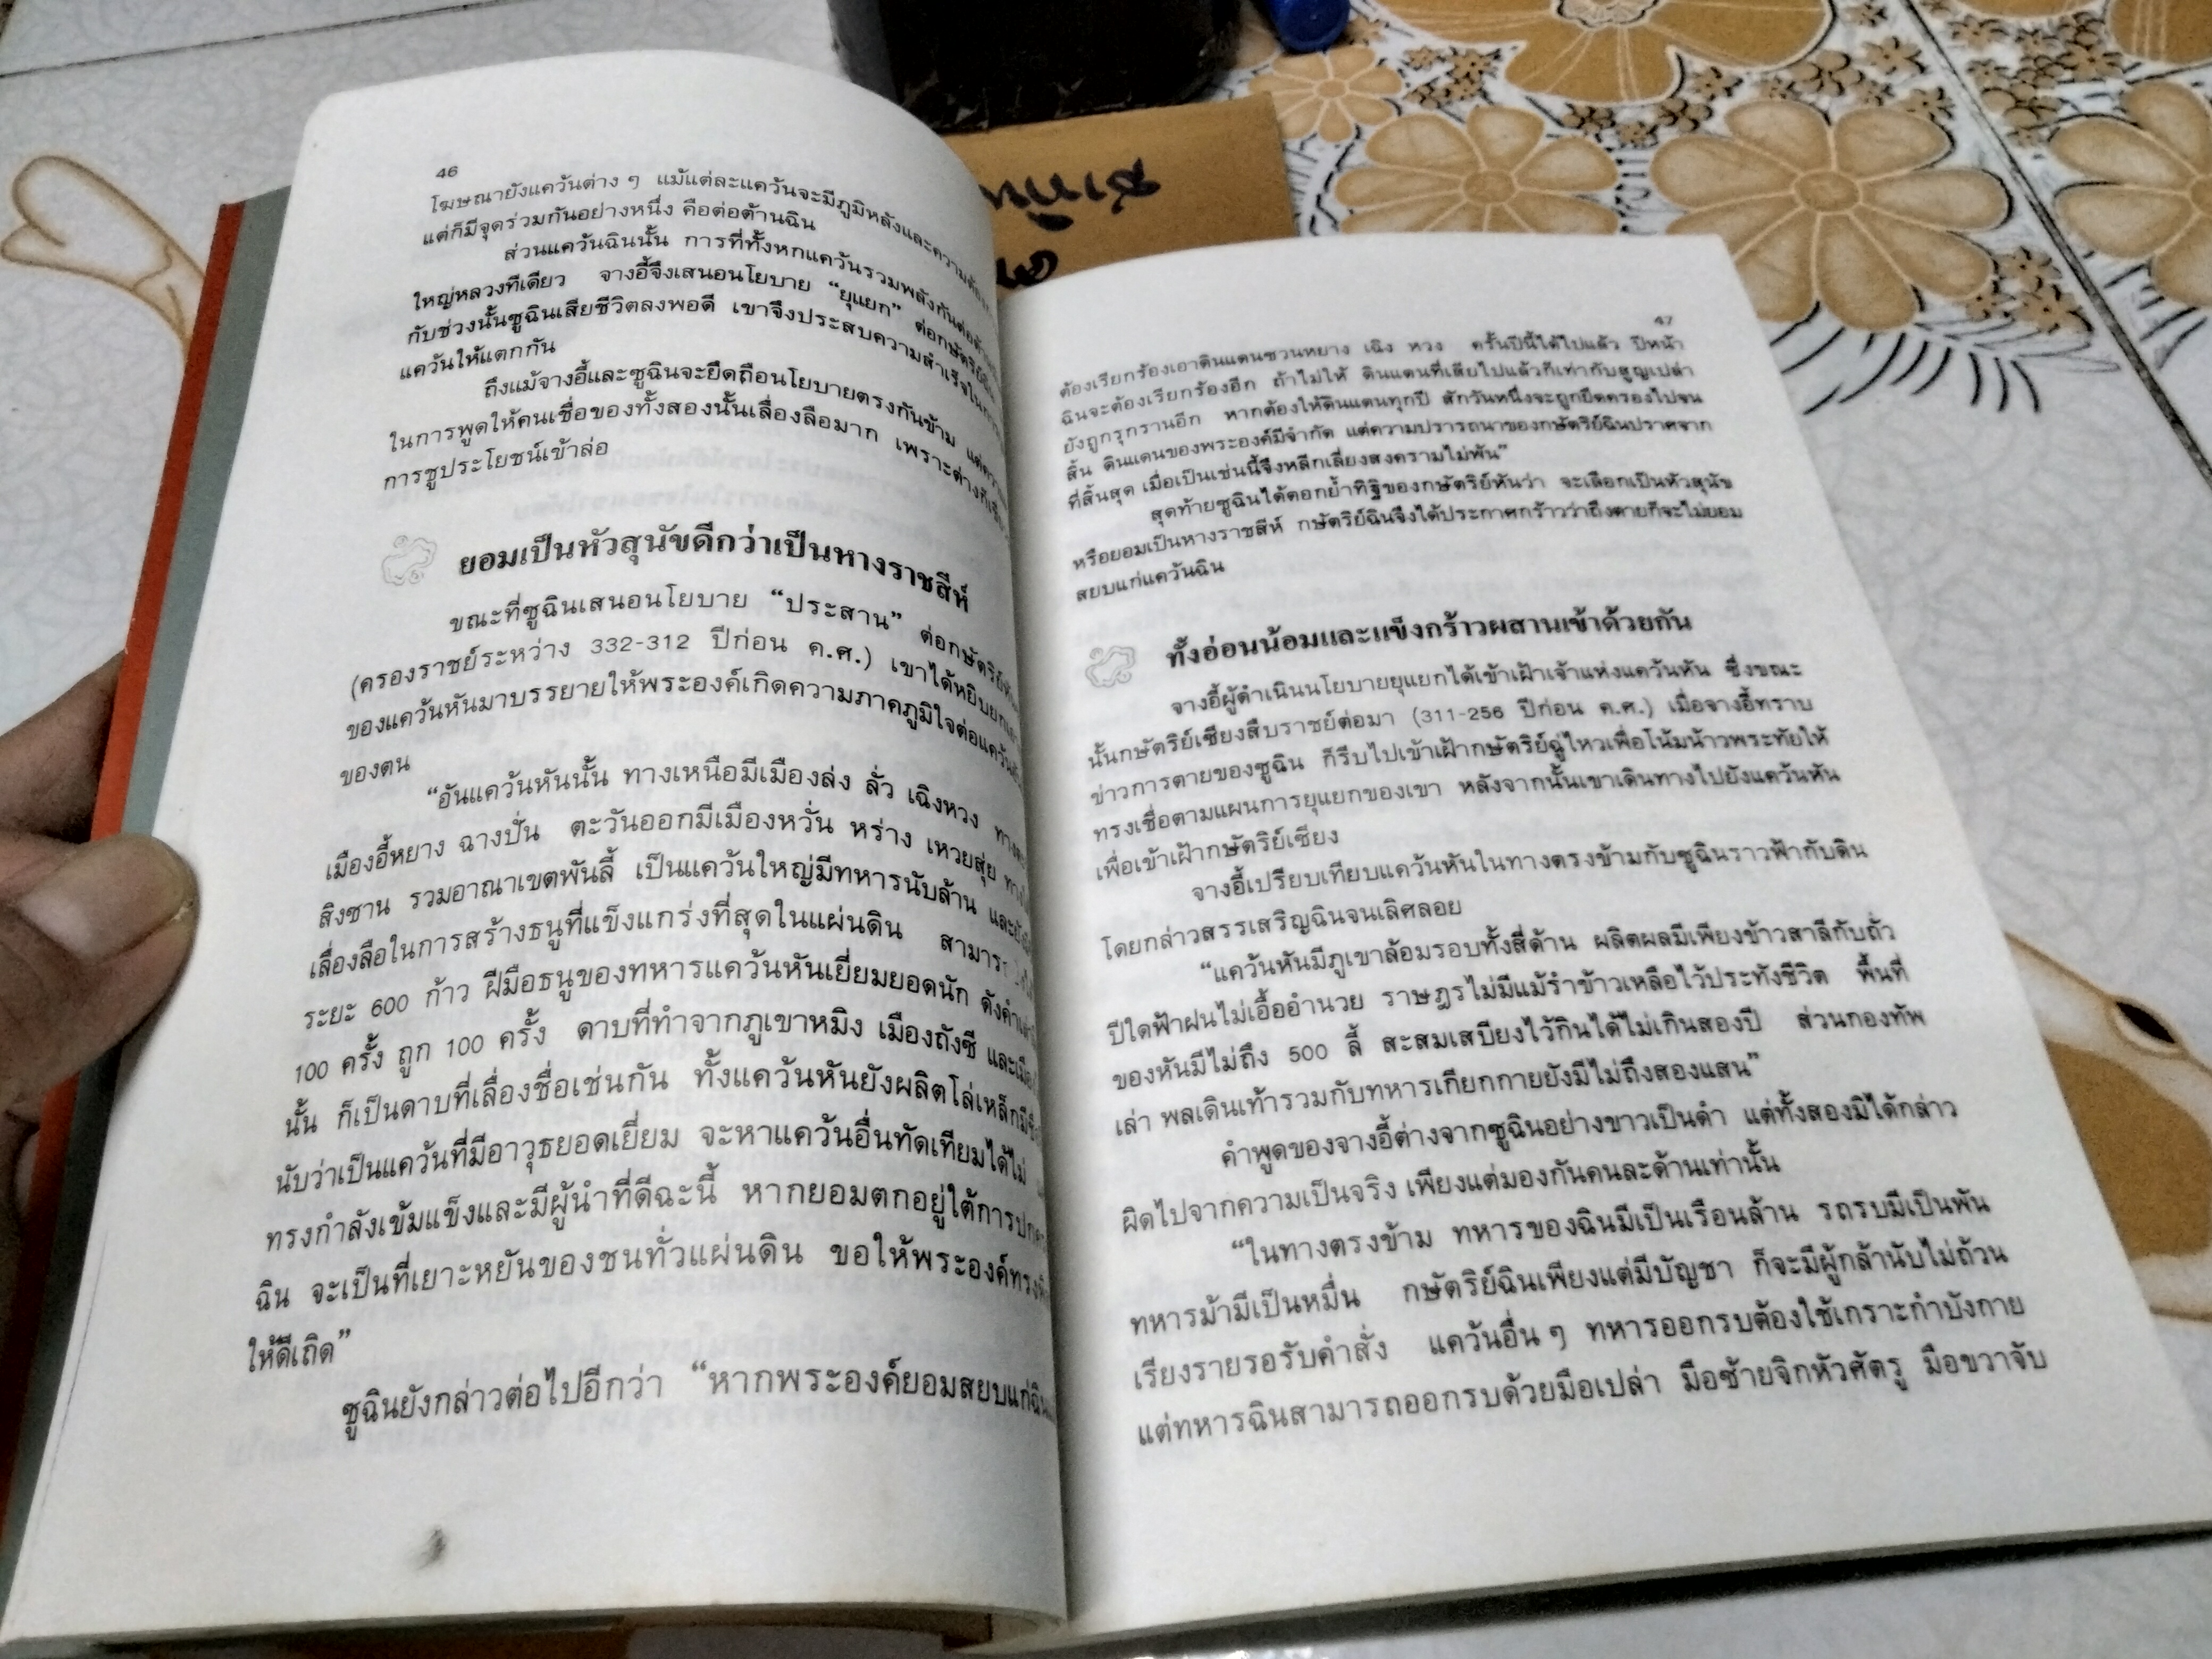 46
โฆษณายังแคว้นต่าง ๆ แม้แต่ละแคว้นจะมีภูมิหลังและความต้อง
แต่ก็มีจุดร่วมกันอย่างหนึ่ง คือต่อต้านฉิน
ส่วนแคว้นฉินนั้น การที่ทั้งหกแคว้นรวมพลังกันต่อต้าน
ใหญ่หลวงทีเดียว จางอี้จึงเสนอนโยบาย “ยุแยก” ต่อกษัตริย์ฉิน
กับช่วงนั้นซูฉินเสียชีวิตลงพอดี เขาจึงประสบความสำเร็จในการ
แคว้นให้แตกกัน
ถึงแม้จางอี้และซูฉินจะยึดถือนโยบายตรงกันข้าม แต่
ในการพูดให้คนเชื่อของทั้งสองนั้นเลื่องลือมาก เพราะต่างก็
การชูประโยชน์เข้าล่อ
ยอมเป็นหัวสุนัขดีกว่าเป็นหางราชสีห์
ขณะที่ซูฉินเสนอนโยบาย “ประสาน” ต่อกษัตริย์
(ครองราชย์ระหว่าง 332-312 ปีก่อน ค.ศ.) เขาได้หยิบยก
ของแคว้นหันมาบรรยายให้พระองค์เกิดความภาคภูมิใจต่อแคว้น
ของตน
“อันแคว้นหันนั้น ทางเหนือมีเมืองล่ง ลั่ว เฉิงหวง
เมืองอี้หยาง ฉางปั่น ตะวันออกมีเมืองหวั่น หร่าง เหวยสุ่ย
สิงซาน รวมอาณาเขตพันลี้ เป็นแคว้นใหญ่มีทหารนับล้าน และ
เลื่องลือในการสร้างธนูที่แข็งแกร่งที่สุดในแผ่นดิน
ระยะ 600 ก้าว ฝีมือธนูของทหารแคว้นหันเยี่ยมยอดนัก
100 ครั้ง ถูก 100 ครั้ง ดาบที่ทำจากภูเขาหมิง เมืองถังซี และ
นั้น ก็เป็นดาบที่เลื่องชื่อเช่นกัน ทั้งแคว้นหันยังผลิตโล่เหล็ก
นับว่าเป็นแคว้นที่มีอาวุธยอดเยี่ยม จะหาแคว้นอื่นทัดเทียมได้ไม่
ทรงกำลังเข้มแข็งและมีผู้นำที่ดีฉะนี้ หากยอมตกอยู่ใต้การ
ฉิน จะเป็นที่เยาะหยันของชนทั่วแผ่นดิน ขอให้พระองค์ทรง
ให้ดีเถิด”
ซูฉินยังกล่าวต่อไปอีกว่า “หากพระองค์ยอมสยบแก่ฉิน
47
ต้องเรียกร้องเอาดินแดนซวนหยาง เฉิง หวง ครั้นปีนี้ได้ไปแล้ว ปีหน้า
ฉินจะต้องเรียกร้องอีก ถ้าไม่ให้ ดินแดนที่เสียไปแล้วก็เท่ากับสูญเปล่า
ยังถูกรุกรานอีก หากต้องให้ดินแดนทุกปี สักวันหนึ่งจะถูกยึดครองไปจน
สิ้น ดินแดนของพระองค์มีจำกัด แต่ความปรารถนาของกษัตริย์ฉินปราศจาก
ที่สิ้นสุด เมื่อเป็นเช่นนี้จึงหลีกเลี่ยงสงครามไม่พ้น”
สุดท้ายซูฉินได้ตอกย้ำทิฐิของกษัตริย์หันว่า จะเลือกเป็นหัวสุนัข
หรือยอมเป็นหางราชสีห์ กษัตริย์ฉินจึงได้ประกาศกร้าวว่าถึงตายก็จะไม่ยอม
สยบแก่แคว้นฉิน
ทั้งอ่อนน้อมและแข็งกร้าวผสานเข้าด้วยกัน
จางอี้ผู้ดำเนินนโยบายยุแยกได้เข้าเฝ้าเจ้าแห่งแคว้นหัน ซึ่งขณะ
นั้นกษัตริย์เซียงสืบราชย์ต่อมา (311-256 ปีก่อน ค.ศ.) เมื่อจางอี้ทราบ
ข่าวการตายของซูฉิน ก็รีบไปเข้าเฝ้ากษัตริย์ฉู่ไหวเพื่อโน้มน้าวพระทัยให้
ทรงเชื่อตามแผนการยุแยกของเขา หลังจากนั้นเขาเดินทางไปยังแคว้นหัน
เพื่อเข้าเฝ้ากษัตริย์เซียง
จางอี้เปรียบเทียบแคว้นหันในทางตรงข้ามกับซูฉินราวฟ้ากับดิน
โดยกล่าวสรรเสริญฉินจนเลิศลอย
“แคว้นหันมีภูเขาล้อมรอบทั้งสี่ด้าน ผลิตผลมีเพียงข้าวสาลีกับถั่ว
ปีใดฟ้าฝนไม่เอื้ออำนวย ราษฎรไม่มีแม้รำข้าวเหลือไว้ประทังชีวิต พื้นที่
ของหันมีไม่ถึง 500 ลี้ สะสมเสบียงไว้กินได้ไม่เกินสองปี ส่วนกองทัพ
เล่า พลเดินเท้ารวมกับทหารเกียกกายยังมีไม่ถึงสองแสน”
คำพูดของจางอี้ต่างจากซูฉินอย่างขาวเป็นดำ แต่ทั้งสองมิได้กล่าว
ผิดไปจากความเป็นจริง เพียงแต่มองกันคนละด้านเท่านั้น
“ในทางตรงข้าม ทหารของฉินมีเป็นเรือนล้าน รถรบมีเป็นพัน
ทหารม้ามีเป็นหมื่น กษัตริย์ฉินเพียงแต่มีบัญชา ก็จะมีผู้กล้านับไม่ถ้วน
เรียงรายรอรับคำสั่ง แคว้นอื่น ๆ ทหารออกรบต้องใช้เกราะกำบังกาย
แต่ทหารฉินสามารถออกรบด้วยมือเปล่า มือซ้ายจิกหัวศัตรู มือขวาจับ